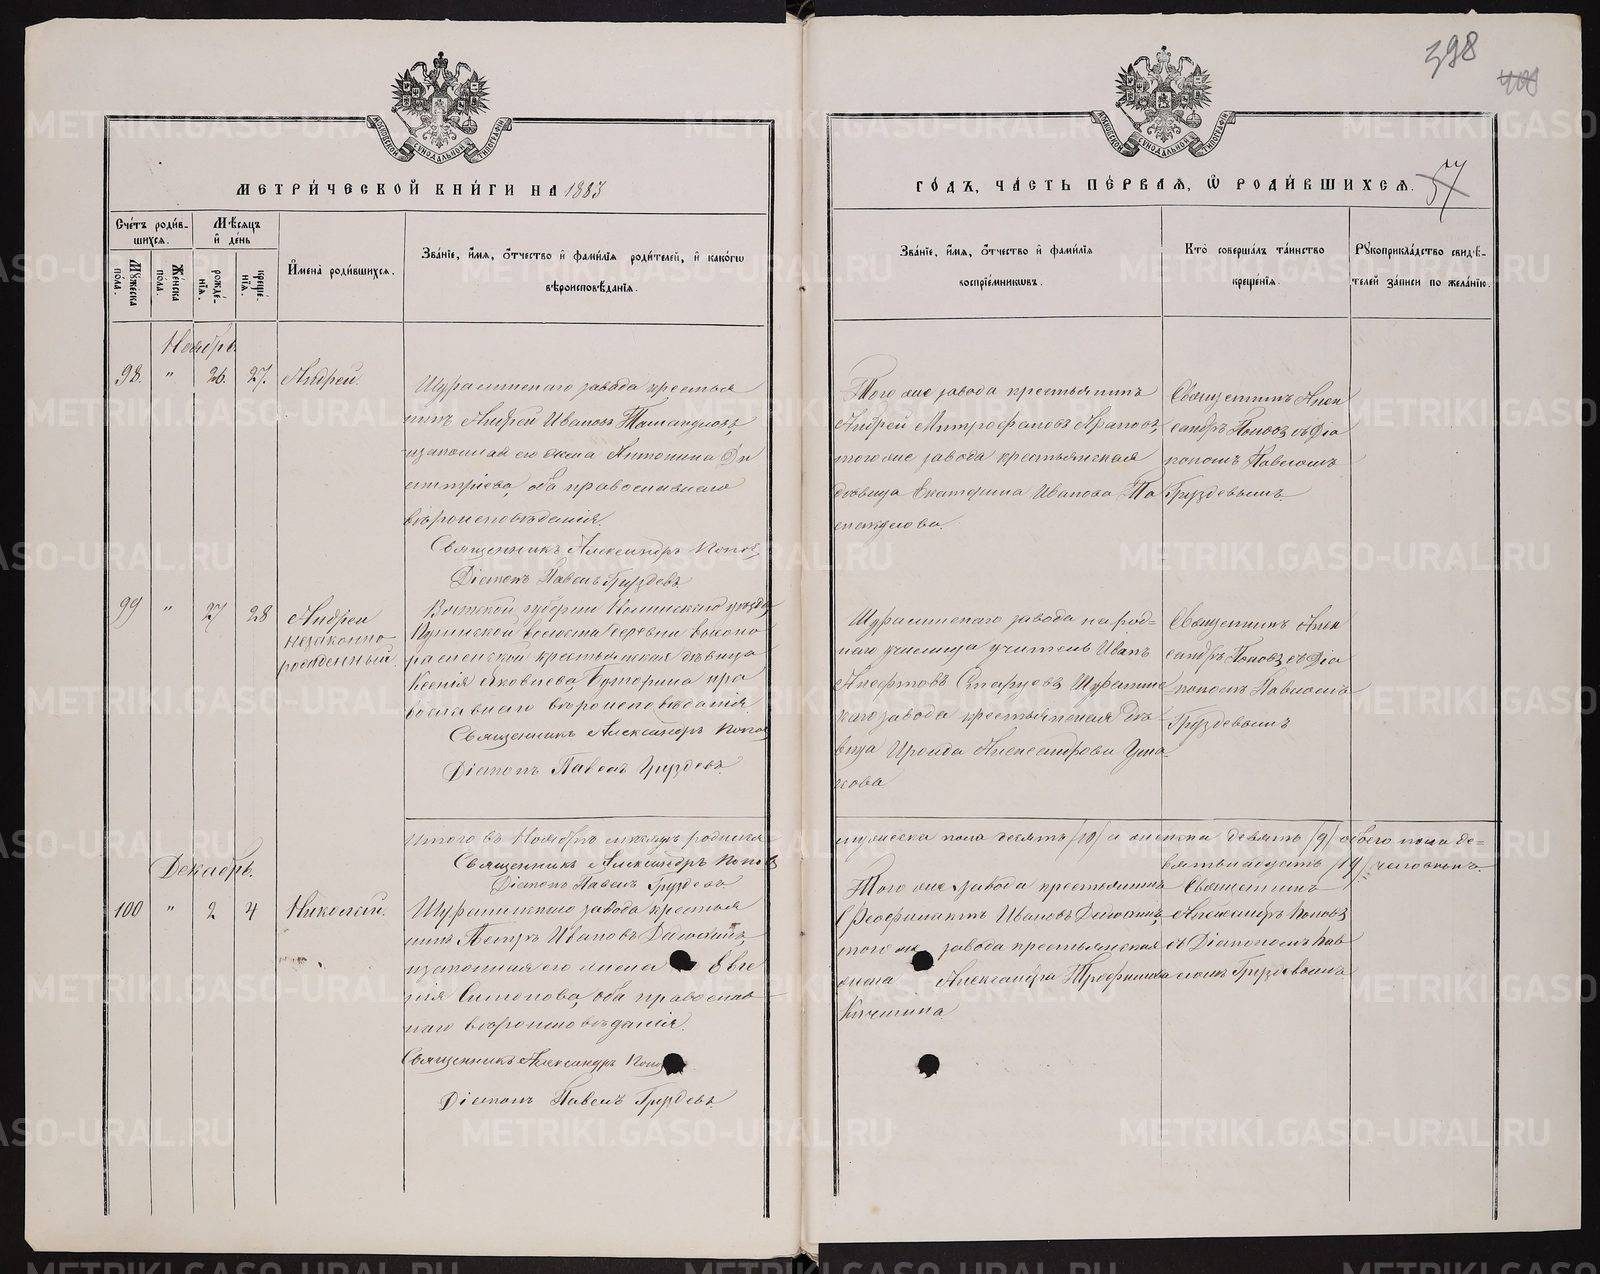 398
408
57
МЕТРИ́ЧЕСКОЙ КНИ́ГИ НА 1883
ГО́ДЪ, ЧА́СТЬ ПЕ́РВАЯ, Ѡ҆ РОДИ́ВШИХСЯ.
МОСКОВСКОЙ СѴНОДАЛЬНОЙ ТИПОГРАФІИ
МОСКОВСКОЙ СѴНОДАЛЬНОЙ ТИПОГРАФІИ
Сче́тъ роди́в-
шихся.
Мꙋжеска по́ла.
Же́нска по́ла.
Мѣ́сяцъ
и҆ де́нь
рожде́-
нїѧ.
креще́-
нїѧ.
И҆мена̀ роди́вшихся.
Зва́нїе, и҆́мѧ, ѻ҆́тчество и҆ фами́лїѧ роди́телей, и҆ како́гѡ
вѣроисповѣ́данїѧ.
Зва́нїе, и҆́мѧ, ѻ҆́тчество и҆ фами́лїѧ
воспрїе́мникѡвъ.
Кто̀ соверша́лъ та́инство
креще́нїѧ.
Рꙋкоприкла́дство свидѣ́-
телей за́писи по жела́нїю.
Ноябрь.
98. " 26. 27. Андрей.
Шуралинскаго завода крестья
нинъ Андрей Ивановъ
и законная его жена Антонина Ди
митріева, оба православнаго
вѣроисповѣданія.
Священникъ Александръ Попов
Діаконъ Павелъ Груздевъ
Того же завода крестьянинъ
Андрей Митрофановъ Араповъ,
того же завода крестьянская
дѣвица Екатерина Иванова
Священникъ Алек
сандръ Поповъ съ Діа
кономъ Павломъ
Груздевымъ
99 " 27 28 Андрей
незаконно
рожденный
Вятской губерніи Нолинскаго уѣзда
волости деревни
крестьянская дѣвица
Ксенія Яковлева Буторина пра
вославнаго вѣроисповѣданія
Священникъ Александръ Попов
Діаконъ Павелъ Груздевъ
Шуралинскаго завода народ-
наго училища учитель Иванъ
Шуралинс
каго завода крестьянская дѣ-
вица Ироида Александрова
Священникъ Алек
сандръ Поповъ съ Діа
кономъ Павломъ
Груздевымъ
Итого въ Ноябрѣ мѣсяцѣ родилось
мужеска пола десять /10/ а женска девять /9/ обоего пола де-
вятьнадцать /19/ человѣкъ.
Священникъ Александръ Попов
Діаконъ Павелъ Груздевъ
Декабрь.
100 " 2 4 Николай.
Шуралинскаго завода крестья
нинъ Петръ Ивановъ
и законная его жена Евге
нія Симонова, оба православ
наго вѣроисповѣданія.
Священникъ Александръ Попо
Діаконъ Павелъ Груздевъ
Того же завода крестьянинъ
Ивановъ
того же завода крестьянская
жена Александра Трофимова
Священникъ
Александръ Поповъ
съ Діакономъ Пав
ломъ Груздевымъ
METRIKI.GASO-URAL.RU